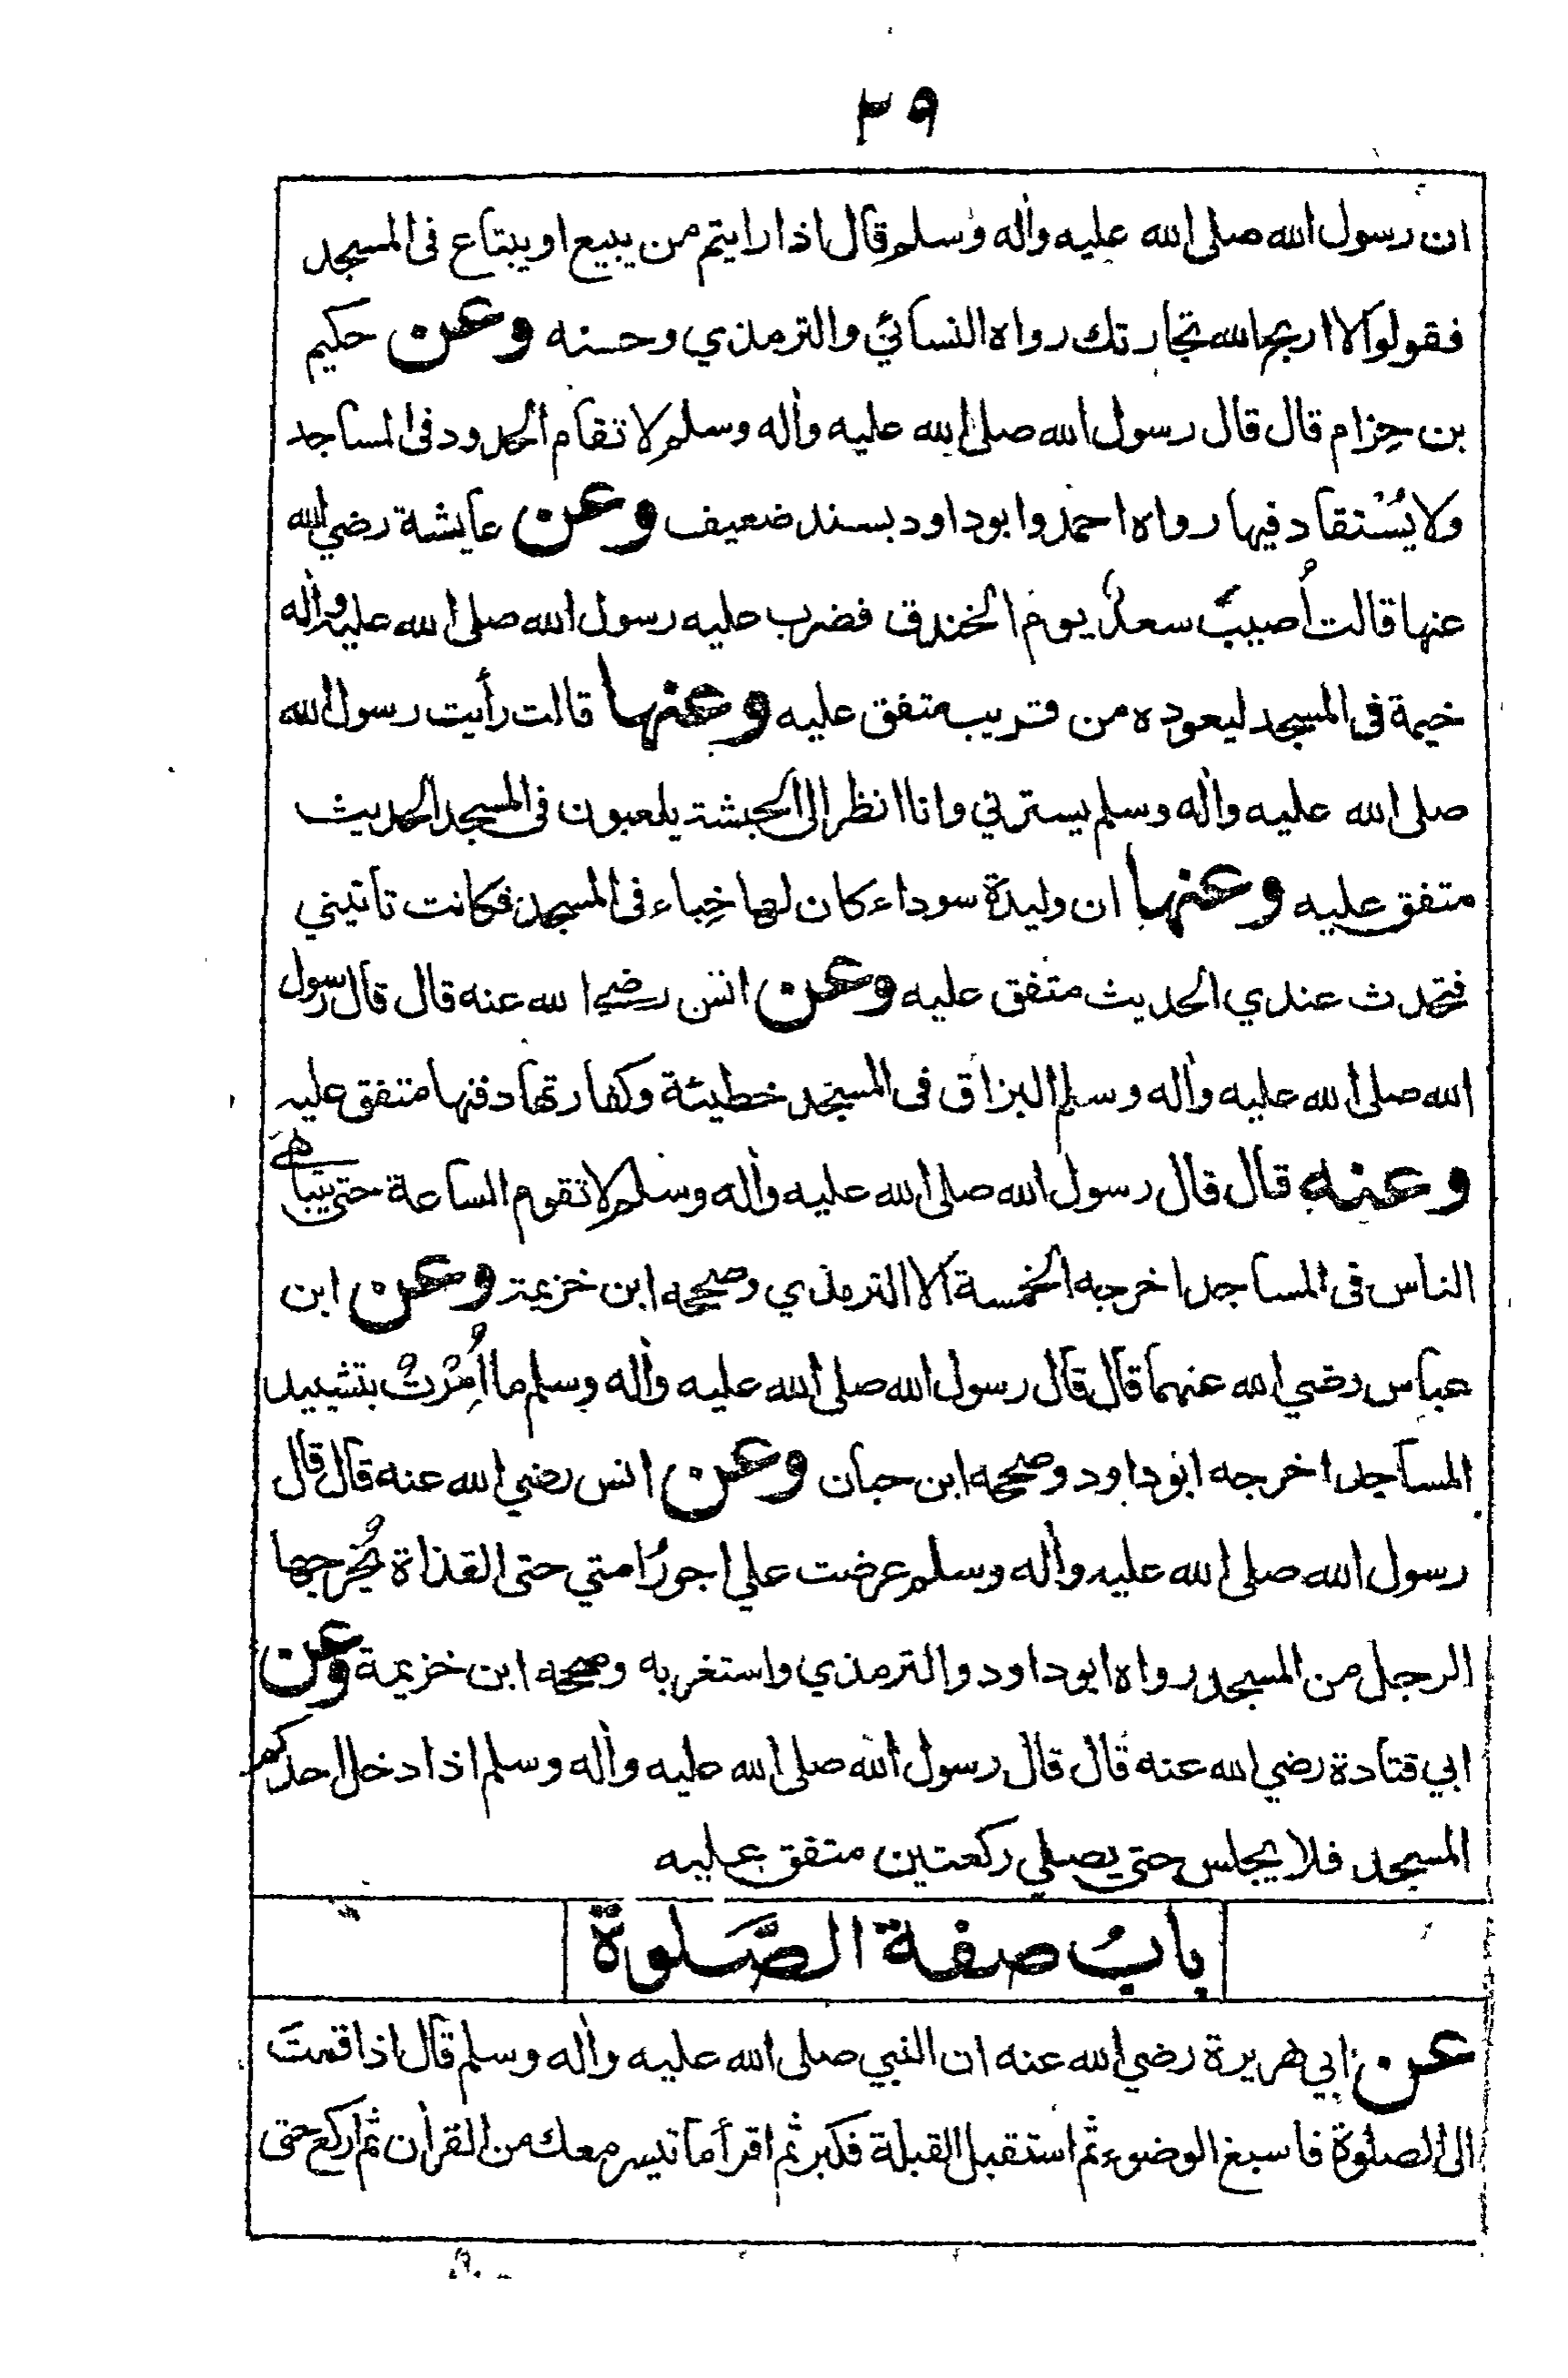 ٢٩
ان رسول الله صلى الله عليه واٰله وسلم قال اذا رايتم من يبيع او يبتاع فى المسجد
فقولوا لا اربح الله تجارتك رواه النسائي والترمذي وحسنه وعن حكيم
بن حِزام قال قال رسول الله صلى الله عليه واٰله وسلم لا تقام الحدود فى المساجد
ولا يُسْتقاد فيها رواه احمد وابو داود بسند ضعيف وعن عايشة رضي الله
عنها قالت اُصيب سعدٌ يوم الخندق فضرب عليه رسول الله صلى الله عليه واٰله
خيمة فى المسجد ليعوده من قريب متفق عليه وعنها قالت رأيت رسول الله
صلى الله عليه واٰله وسلم يسترني وانا انظر الى الحبشة يلعبون فى المسجد الحديث
متفق عليه وعنها ان وليدة سوداء كان لها خِباء فى المسجد فكانت تاتيني
فتحدث عندي الحديث متفق عليه وعن انس رضي الله عنه قال قال رسول
الله صلى الله عليه واٰله وسلم البزاق فى المسجد خطيئة وكفارتها دفنها متفق عليه
وعنه قال قال رسول الله صلى الله عليه واٰله وسلم لا تقوم الساعة حتى يتباهى
الناس فى المساجد اخرجه الخمسة الا الترمذي وصححه ابن خزيمة وعن ابن
عباس رضي الله عنهما قال قال رسول الله صلى الله عليه واٰله وسلم ما اُمِرْتُ بتشييد
المساجد اخرجه ابو داود وصححه ابن حبان وعن انس رضي الله عنه قال قال
رسول الله صلى الله عليه واٰله وسلم عرضت علي اجورُ امتي حتى القذاة يُخرجها
الرجل من المسجد رواه ابو داود والترمذي واستغربه وصححه ابن خزيمة وعن
ابي قتادة رضي الله عنه قال قال رسول الله صلى الله عليه واٰله وسلم اذا دخل احدكم
المسجد فلا يجلس حتى يصلي ركعتين متفق عليه
بابُ صفة الصَّلوة
عن ابي هريرة رضي الله عنه ان النبي صلى الله عليه واٰله وسلم قال اذا قمتَ
الى الصلوة فاسبغ الوضوء ثم استقبل القبلة فكبر ثم اقرأ ما تيسر معك من القراٰن ثم اركع حتى